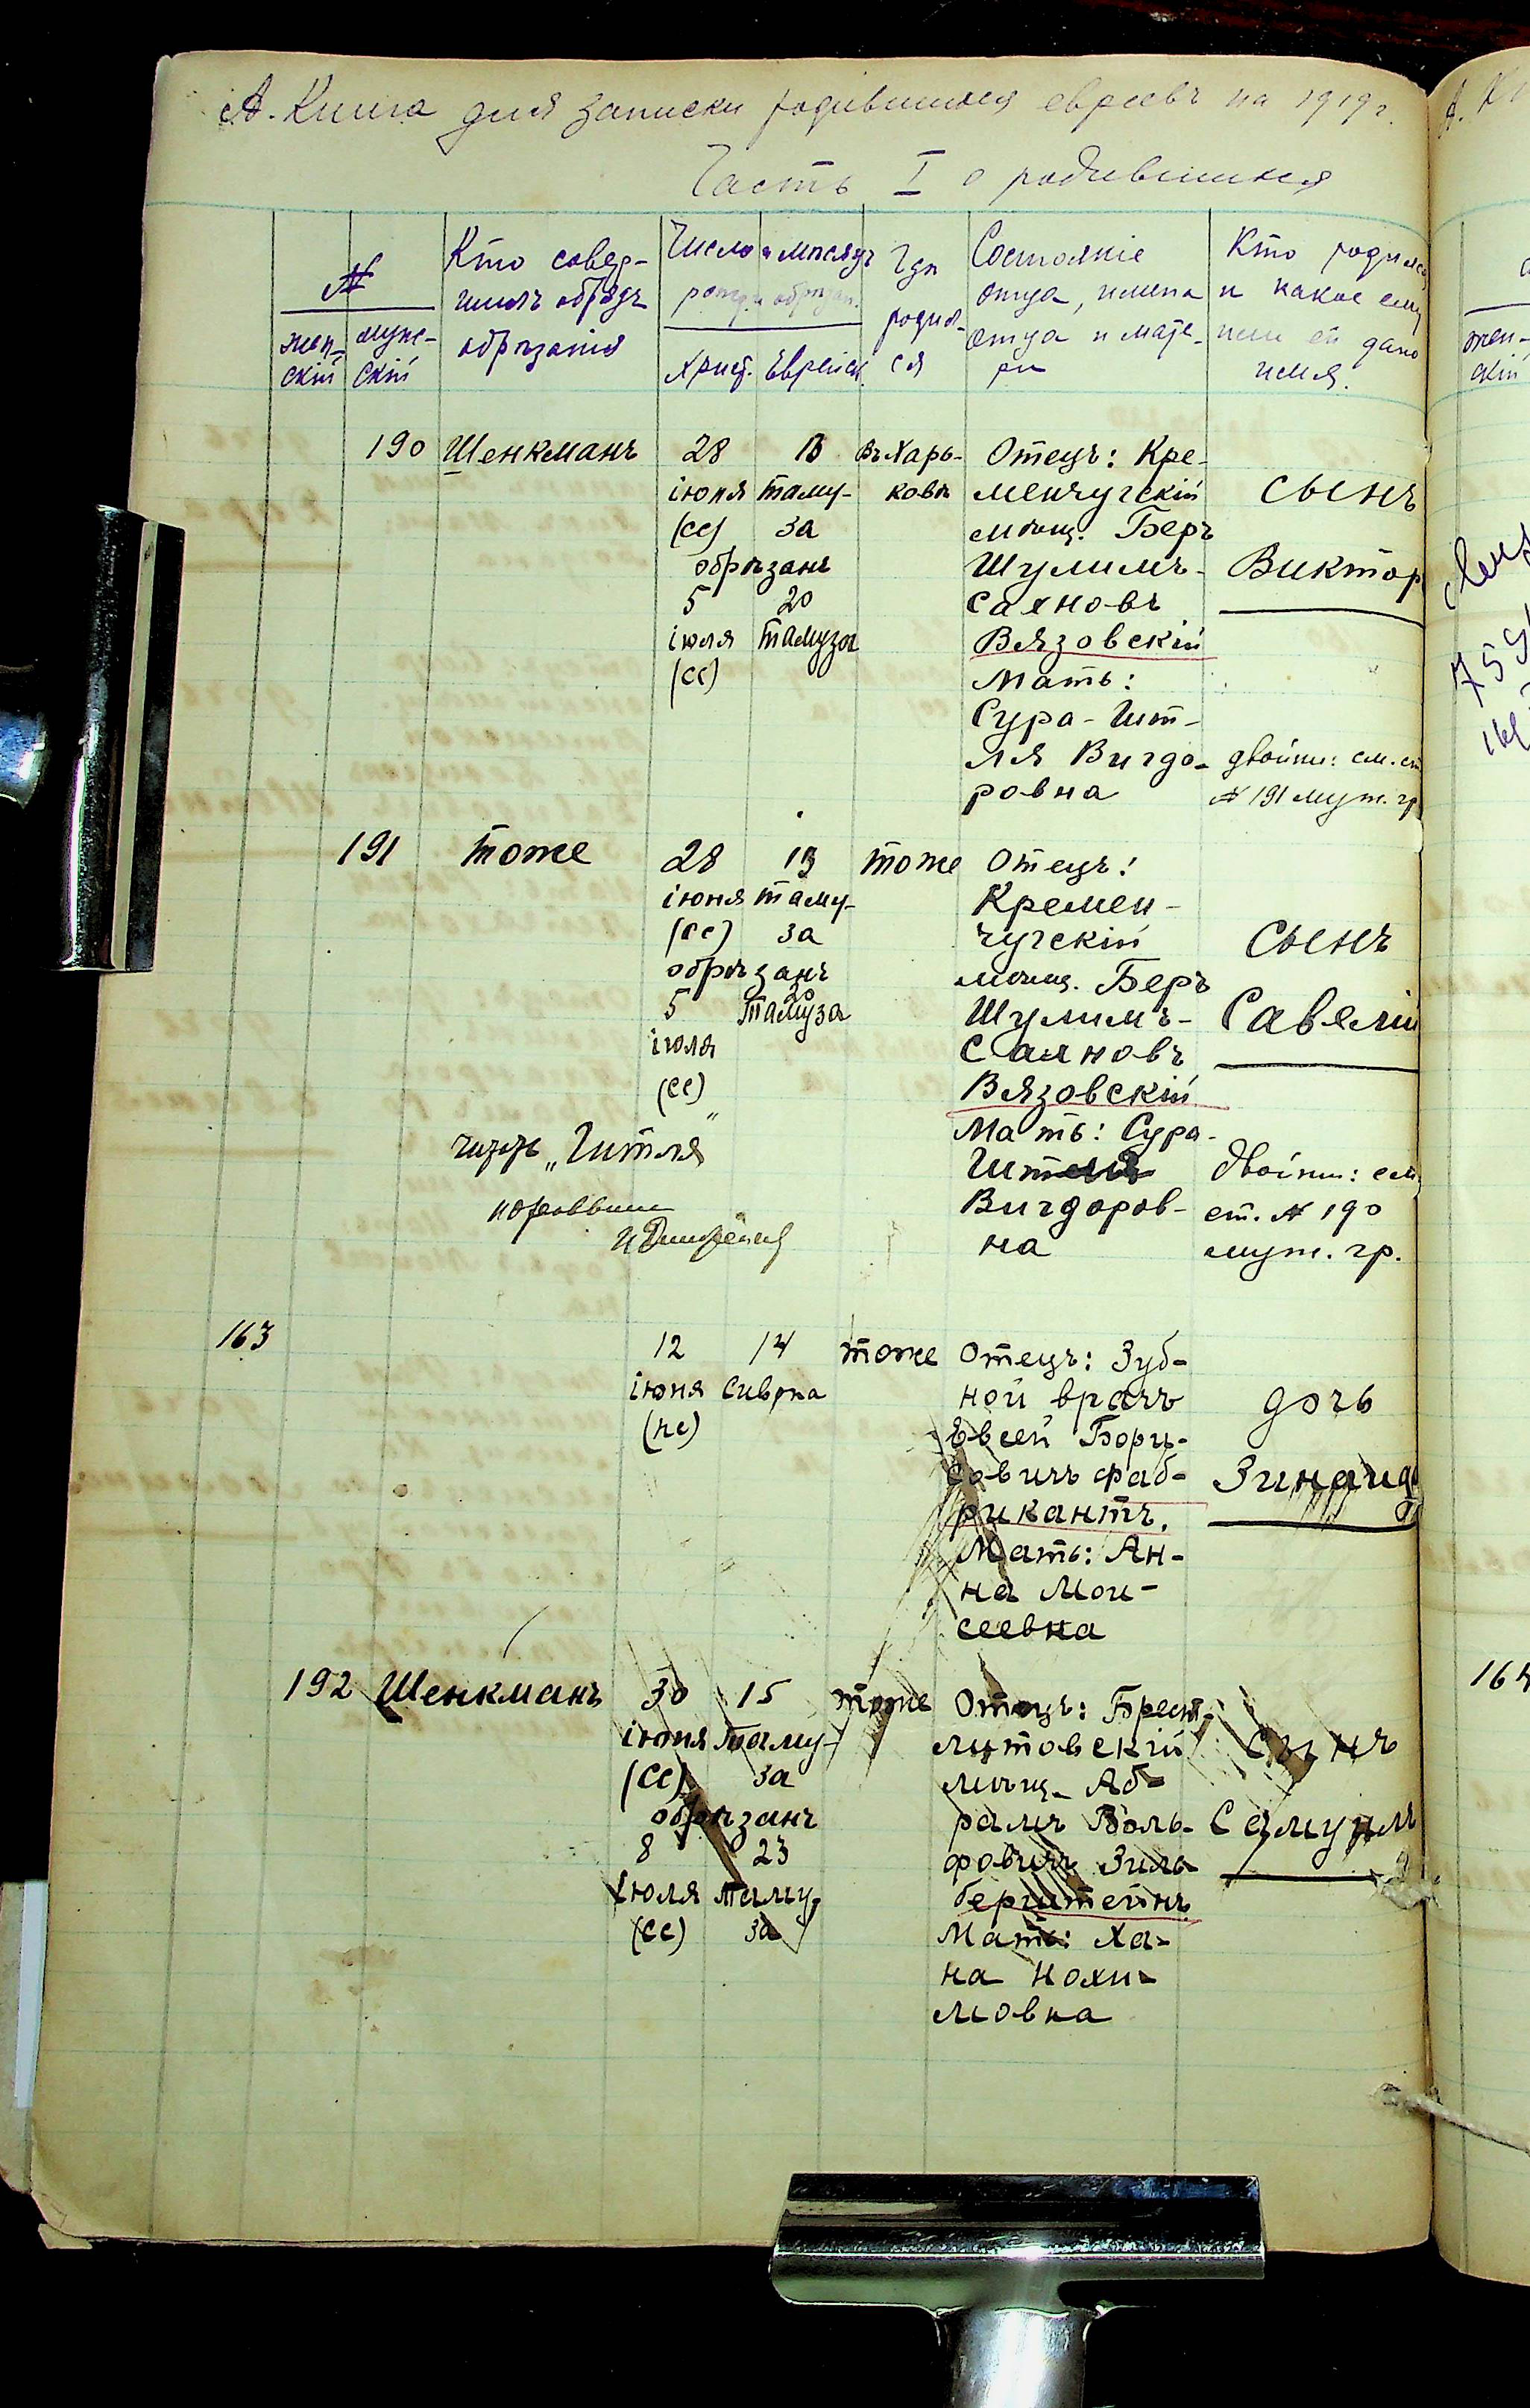 А. Книга для записки родившихся евреевъ на 1919 г.
Часть I о родившихся
№
жен-
скій
муж-
скій
Кто совер-
шилъ обрядъ
обрѣзанія
Число и мѣсяцъ
рожд. и обрѣзан.
Христ. Еврейск.
Гдѣ
родил-
ся
Состояніе
отца, имена
отца и мате-
ри
Кто родился
и какое ему
или ей дано
имя.
190 Шенкманъ
28 13
іюня таму-
(сс) за
обрѣзанъ
5 20
іюля тамуза
(сс)
въ Харь-
ковѣ
Отецъ: Кре-
менчугскій
мѣщ. Беръ
Шулимъ-
Сахновъ
Вязовскій
Мать:
Сура-Гит-
ля Вигдо-
ровна
сынъ
Виктор
двойни: см. ст
№ 191 муж. гр.
191 тоже
28 13
іюня таму-
(сс) за
обрѣзанъ
5 20
тамуза
іюля
(сс)
тоже
Отецъ:
Кремен-
чугскій
мѣщ. Беръ
Шулимъ-
Сахновъ
Вязовскій
Мать: Сура-
Гитля
Вигдоров-
на
сынъ
Савелій
двойни: см.
ст. № 190
муж. гр.
„Гитля”
163
12 14
іюня Сивона
(нс)
тоже
Отецъ: Зуб-
ной врачъ
Евсей Бори-
совичъ Фаб-
рикантъ.
Мать: Ан-
на Мои-
сеевна
дочь
Зинаида
192 Шенкманъ
30 15
іюня таму-
(сс) за
обрѣзанъ
8 23
іюля таму-
(сс) за
тоже
Отецъ: Брест-
литовскій
мѣщ. Аб-
рамъ Воль-
фовичъ Зиль-
берштейнъ
Мать: Ха-
на Нохи-
мовна
сынъ
Самуилъ
164